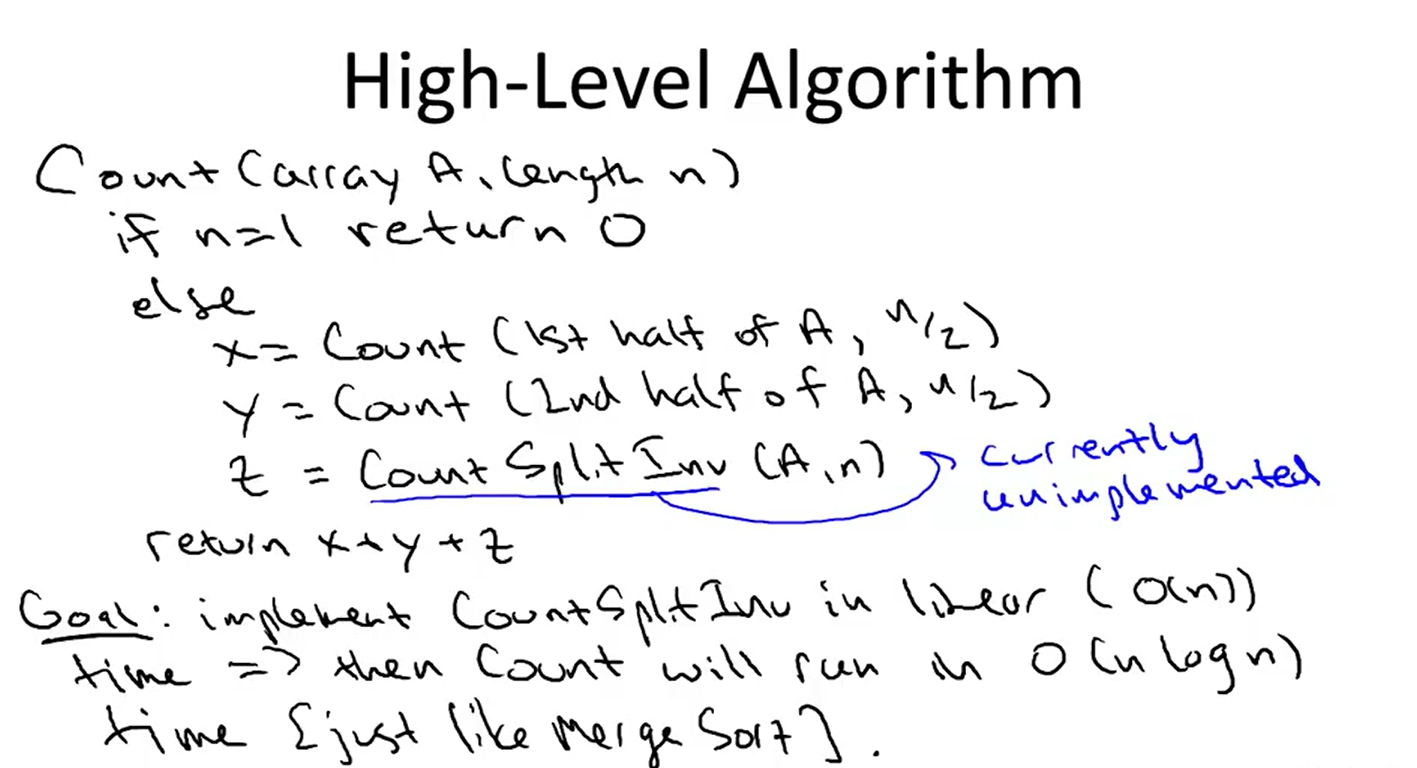 High-Level Algorithm
Count (array A, length n)
if n=1 return 0
else
x = Count (1st half of A, n/2)
y = Count (2nd half of A, n/2)
z = CountSplitInv (A,n)
currently
unimplemented
return x+y+z
Goal: implement CountSplitInv in linear (O(n))
time => then Count will run in O(n log n)
time [just like Merge Sort].